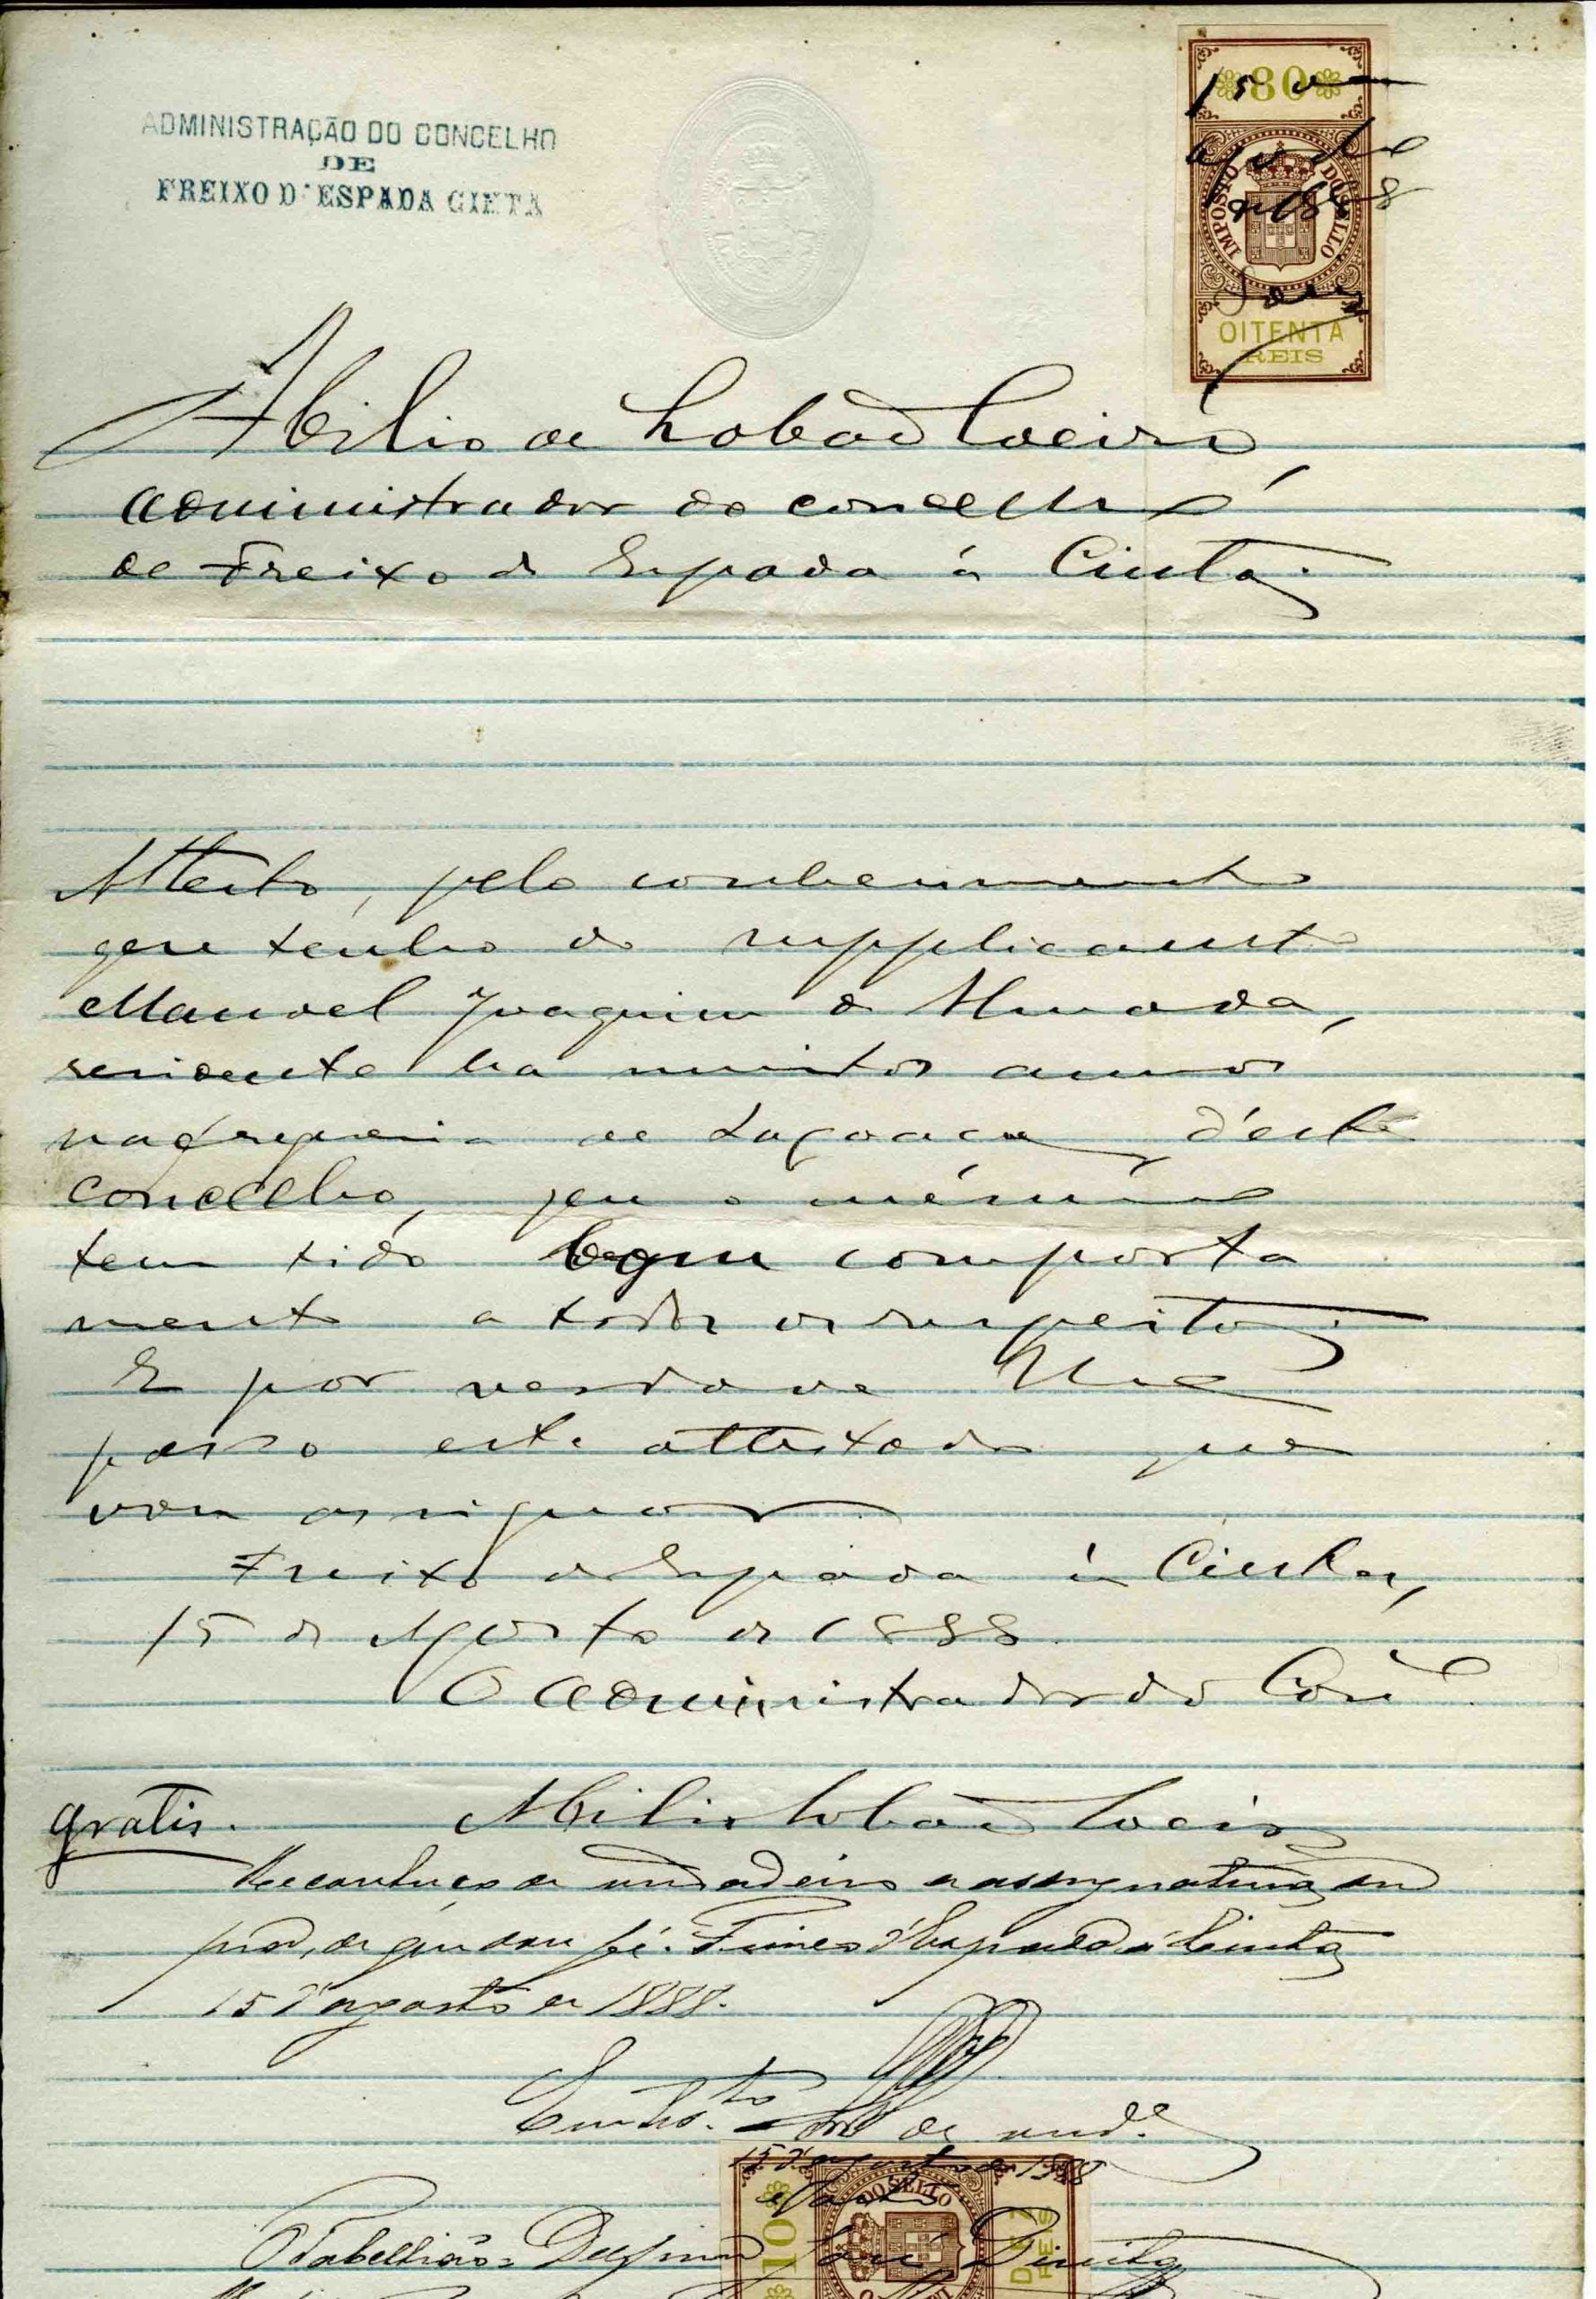 ADMINISTRAÇÃO DO CONCELHO
DE
FREIXO D'ESPADA CINTA
80
15 de
Agosto de
1888
IMPOSTO DO SELLO
OITENTA
REIS
Abilio de Lobão Soeiro,
Administrador do concelho
de Freixo de Espada á Cinta.
Attesto, pelo conhecimento
que tenho do supplicante
Manoel Joaquim d'Almada,
residente ha muitos annos
na freguesia de Lagoaça, d'este
concelho, que o mesmo
tem tido bom comporta
mento a todos os respeitos.
E por verdade lhe
passo este attestado que
vou assignar.
Freixo d'Espada á Cinta,
15 de Agosto de 1888.
O Administrador do Con.º
gratis.
Abilio Lobão Soeiro
Reconheço de verdadeira a assignatura
de que dou fé. Freixo d'Espada á Cinta
15 d'agosto de 1888.
Em test.º de verd.e
15 d'agosto de 1888
10
DO SELLO
DEZ
REIS
O Tabellião José